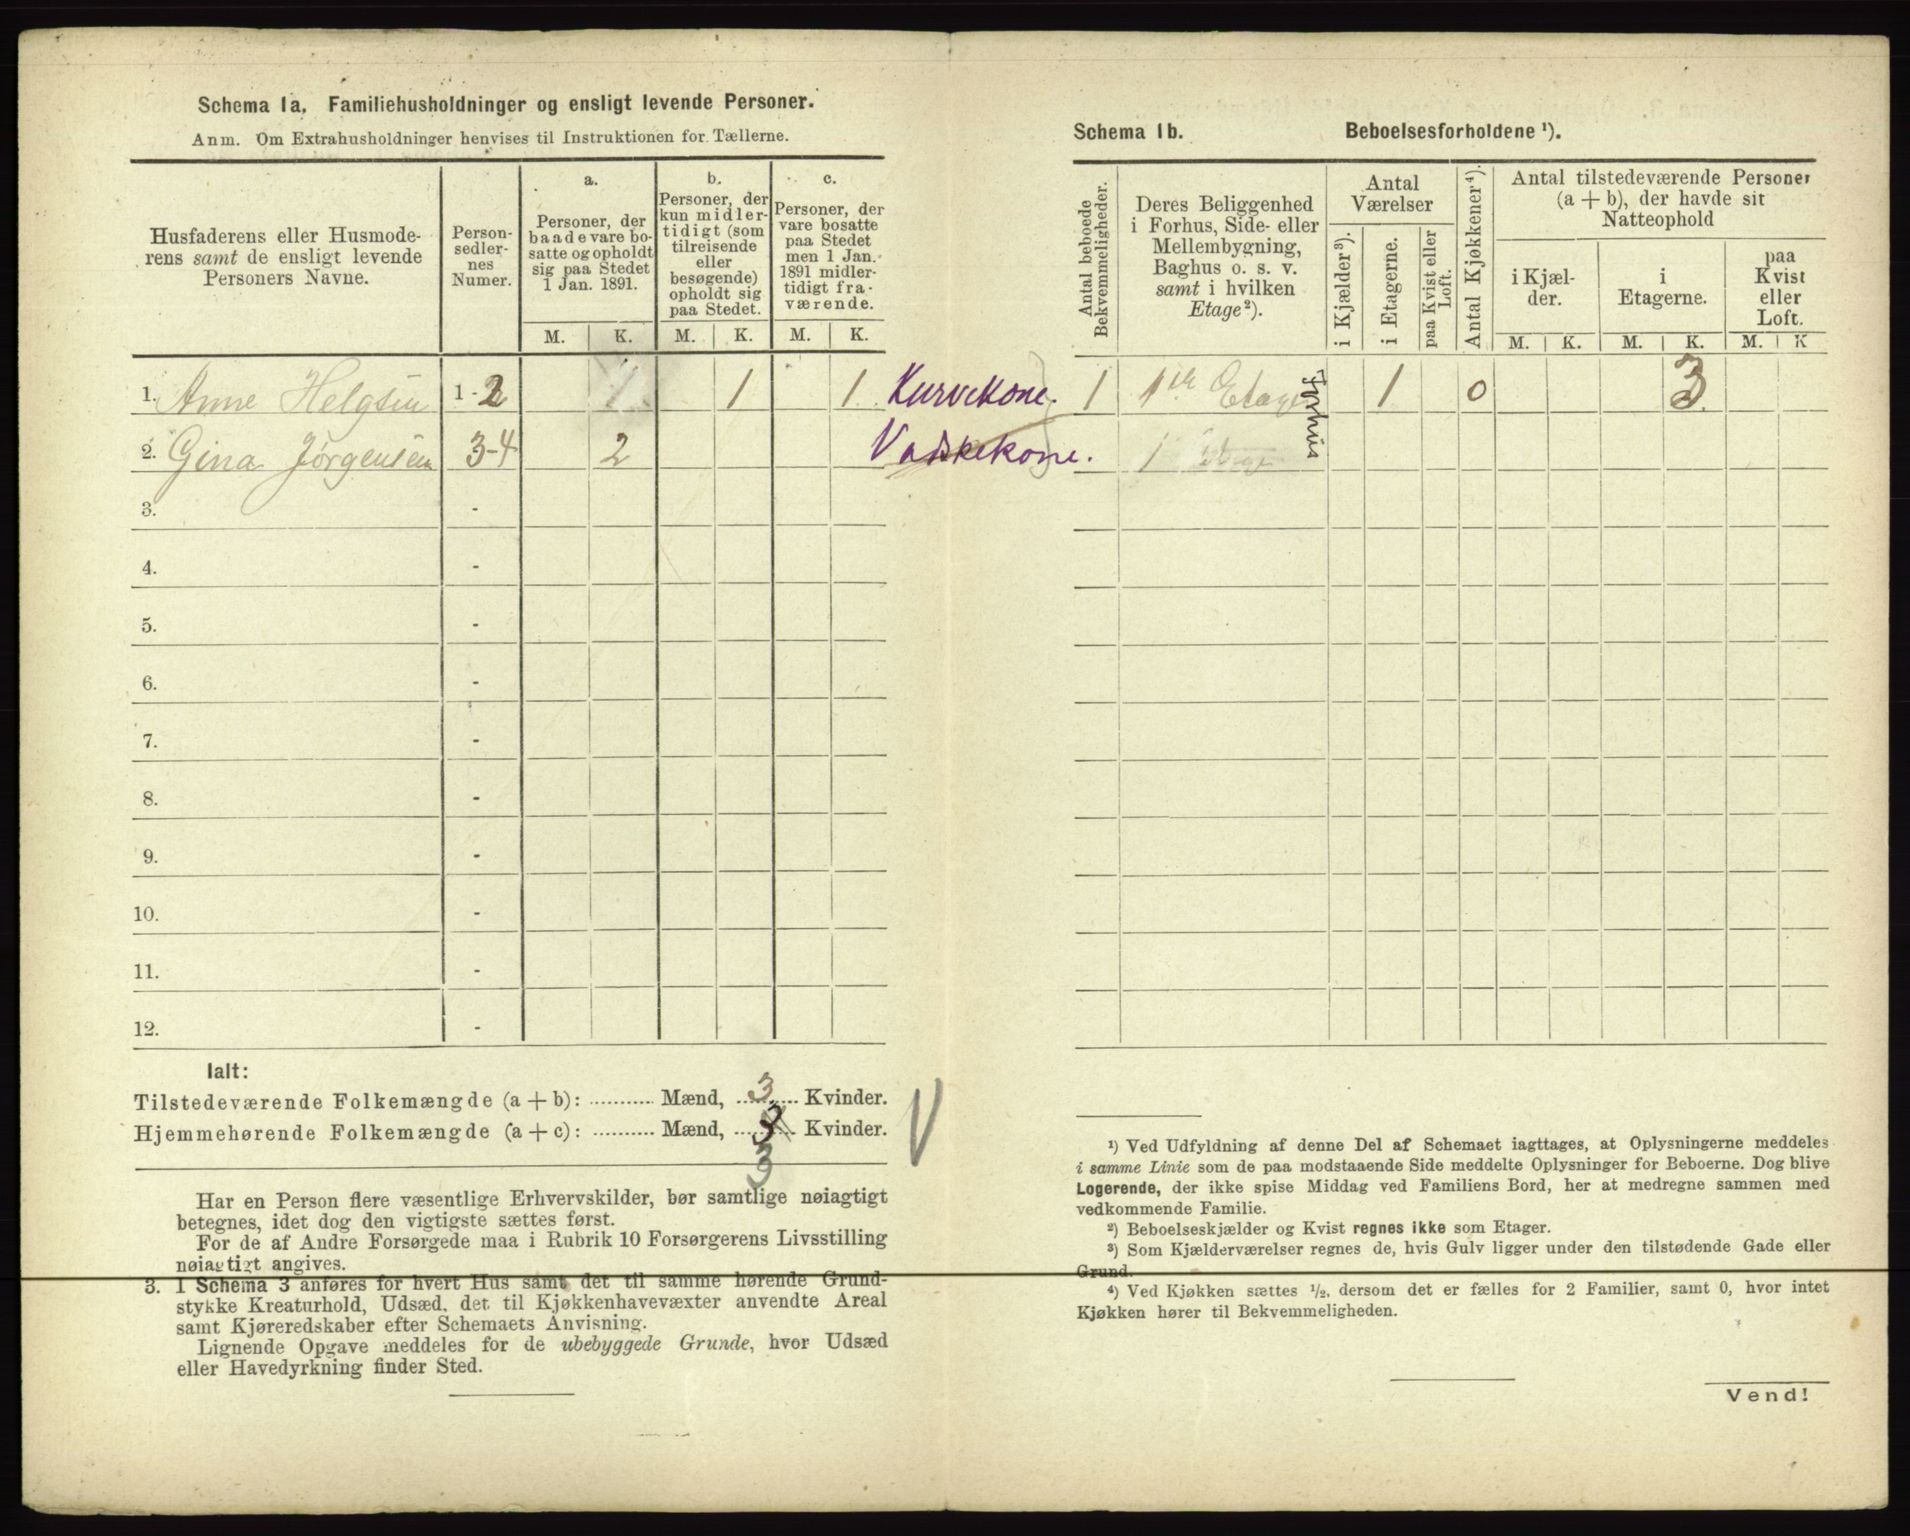 Schema 1a. Familiehusholdninger og ensligt levende Personer.
Anm. Om Extrahusholdninger henvises til Instruktionen for Tællerne.
Husfaderens eller Husmode-
rens samt de ensligt levende
Personers Navne.
Person-
sedler-
nes
Numer.
a.
Personer, der
baade vare bo-
satte og opholdt
sig paa Stedet
1 Jan. 1891.
b.
Personer, der
kun midler-
tidigt (som
tilreisende
eller
besøgende)
opholdt sig
paa Stedet.
c.
Personer, der
vare bosatte
paa Stedet
men 1 Jan.
1891 midler-
tidigt fra-
værende.
M. K. M. K. M. K.
1. Anne Helgsen 1-2 1 1 1 Kurvekone.
2. Gina Jørgensen 3-4 2 Vadskekone.
3. -
4. -
5. -
6. -
7. -
8. -
9. -
10. -
11. -
12. -
Ialt:
Tilstedeværende Folkemængde (a + b): .......... Mænd, 3 Kvinder.
Hjemmehørende Folkemængde (a + c): .......... Mænd, 3 Kvinder.
3
Har en Person flere væsentlige Erhvervskilder, bør samtlige nøiagtigt
betegnes, idet dog den vigtigste sættes først.
For de af Andre Forsørgede maa i Rubrik 10 Forsørgerens Livsstilling
nøiagtigt angives.
3. I Schema 3 anføres for hvert Hus samt det til samme hørende Grund-
stykke Kreaturhold, Udsæd, det til Kjøkkenhavevæxter anvendte Areal
samt Kjøreredskaber efter Schemaets Anvisning.
Lignende Opgave meddeles for de ubebyggede Grunde, hvor Udsæd
eller Havedyrkning finder Sted.
Schema 1b. Beboelsesforholdene ¹).
Antal beboede
Bekvemmeligheder.
Deres Beliggenhed
i Forhus, Side- eller
Mellembygning,
Baghus o. s. v.
samt i hvilken
Etage²).
Antal
Værelser
i Kjælder³).
i Etagerne.
paa Kvist eller
Loft.
Antal Kjøkkener⁴).
Antal tilstedeværende Personer
(a + b), der havde sit
Natteophold
i Kjæl-
der.
i
Etagerne.
paa
Kvist
eller
Loft.
M. K. M. K. M. K
1 1ste Etage 1 0 3
1 Etage
¹) Ved Udfyldning af denne Del af Schemaet iagttages, at Oplysningerne meddeles
i samme Linie som de paa modstaaende Side meddelte Oplysninger for Beboerne. Dog blive
Logerende, der ikke spise Middag ved Familiens Bord, her at medregne sammen med
vedkommende Familie.
²) Beboelseskjælder og Kvist regnes ikke som Etager.
³) Som Kjælderværelser regnes de, hvis Gulv ligger under den tilstødende Gade eller
Grund.
⁴) Ved Kjøkken sættes ½, dersom det er fælles for 2 Familier, samt 0, hvor intet
Kjøkken hører til Bekvemmeligheden.
Vend!